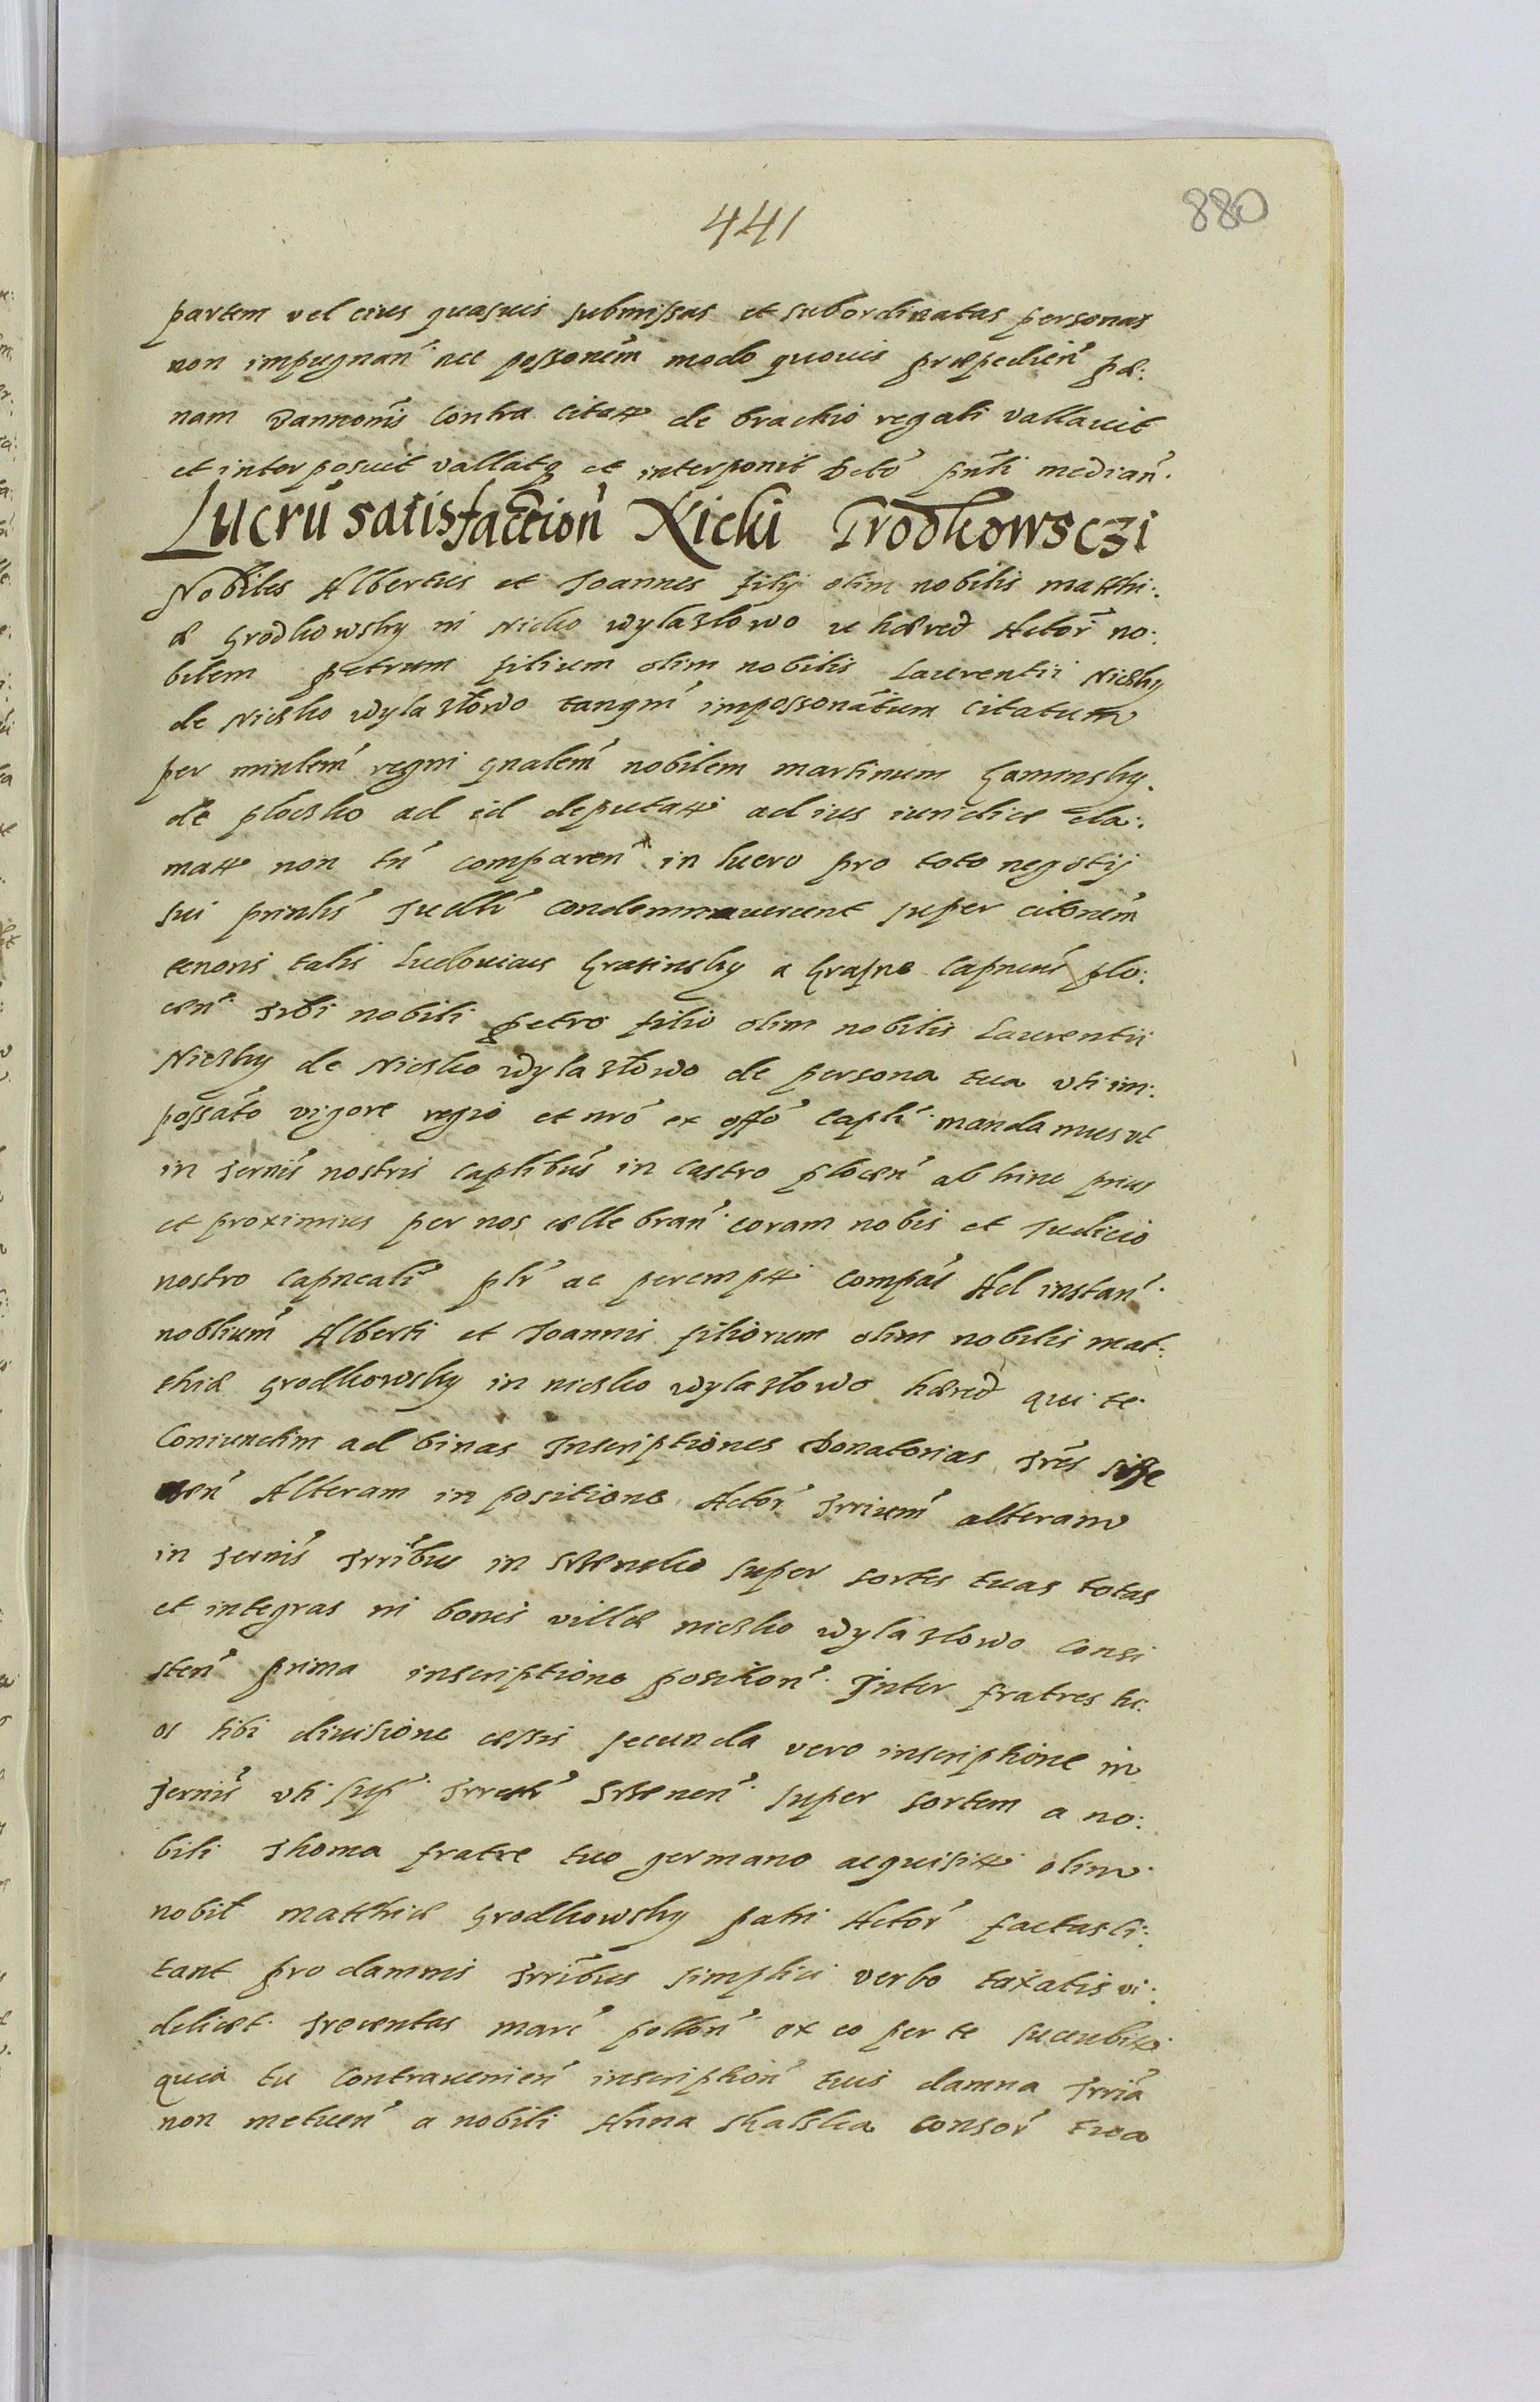 441
880
partem vel eius quasuis submissas et subordinatas personas
non impugnan̄ nec possonem̄ modo quouis præpedien̄ pæ:
nam Bannonis̄ contra citat͞ de brachio regali vallauit
et interposuit vallatq et interponit Dcto pn̄ti median̄.
Lucrū satisfaction̄ Nicki Grodkowsczi
Nobiles Albertus et Joannes filij olim nobilis matthi:
æ Grodkowsky in Nicko wylazłowo hæred Actor̄ no:
bilem petrum filium olim nobilis Laurentii Niczky
de Niczko wylazłowo tanqm̄ impossonatum citatum
per minlem̄ regni gnalem̄ nobilem martinum
de ploczko ad id deputat͞ ad ius iuridice cla:
mat͞ non tn̄ comparen̄ in lucro pro toto negotij
sui prinlis̄ Judlr̄ condemnauerunt super citonem̄
tenoris talis Ludouicus Grasinsky a Grapne Capneus̄ plo:
cen̄. Tibi nobili petro filio olim nobilis Laurentii
Niczky de Niczko wylazłowo de persona tua vti im:
possato vigore regio et nr̄o ex offo Caplī mandamus vt
in Termis̄ nostris caplibus̄ in castro plocen̄ ab hinc prius
et proximius per nos cellebran̄. coram nobis et Judicio
nostro capneali plr̄ ac perempt͞ compas̄ Ad instan̄.
noblium̄ Alberti et Joannis filiorum olim nobilis mat:
thiæ Grodkowsky in niczko wylazłowo hæred qui te
Coniunctim ad binas Inscriptiones Donatorias Tres̄
Alteram in positione Actor̄ Trrium̄ alteram
in Termis̄ Trribus in super sortes tuas totas
et integras in bonis villæ niczko wylazłowo consi
sten̄ prima inscriptione position̄. Inter fratres tu:
os tibi diuisione cessis secunda vero inscriptione in
Termis̄ vti sup̄. super sortem a no:
bili Thoma fratre tuo germano acquisit͞ olim
nobil matthiæ Grodkowsky patri Actor̄ factas ci:
tant pro damnis Trribus simplici verbo taxatis vi:
delicet. Trecentas marc̄ pollon̄ ex eo per te succubit͞
quia tu contrauenien̄ inscription̄ tuis damna Trria
non metuen̄ a nobili Anna consor̄ tua